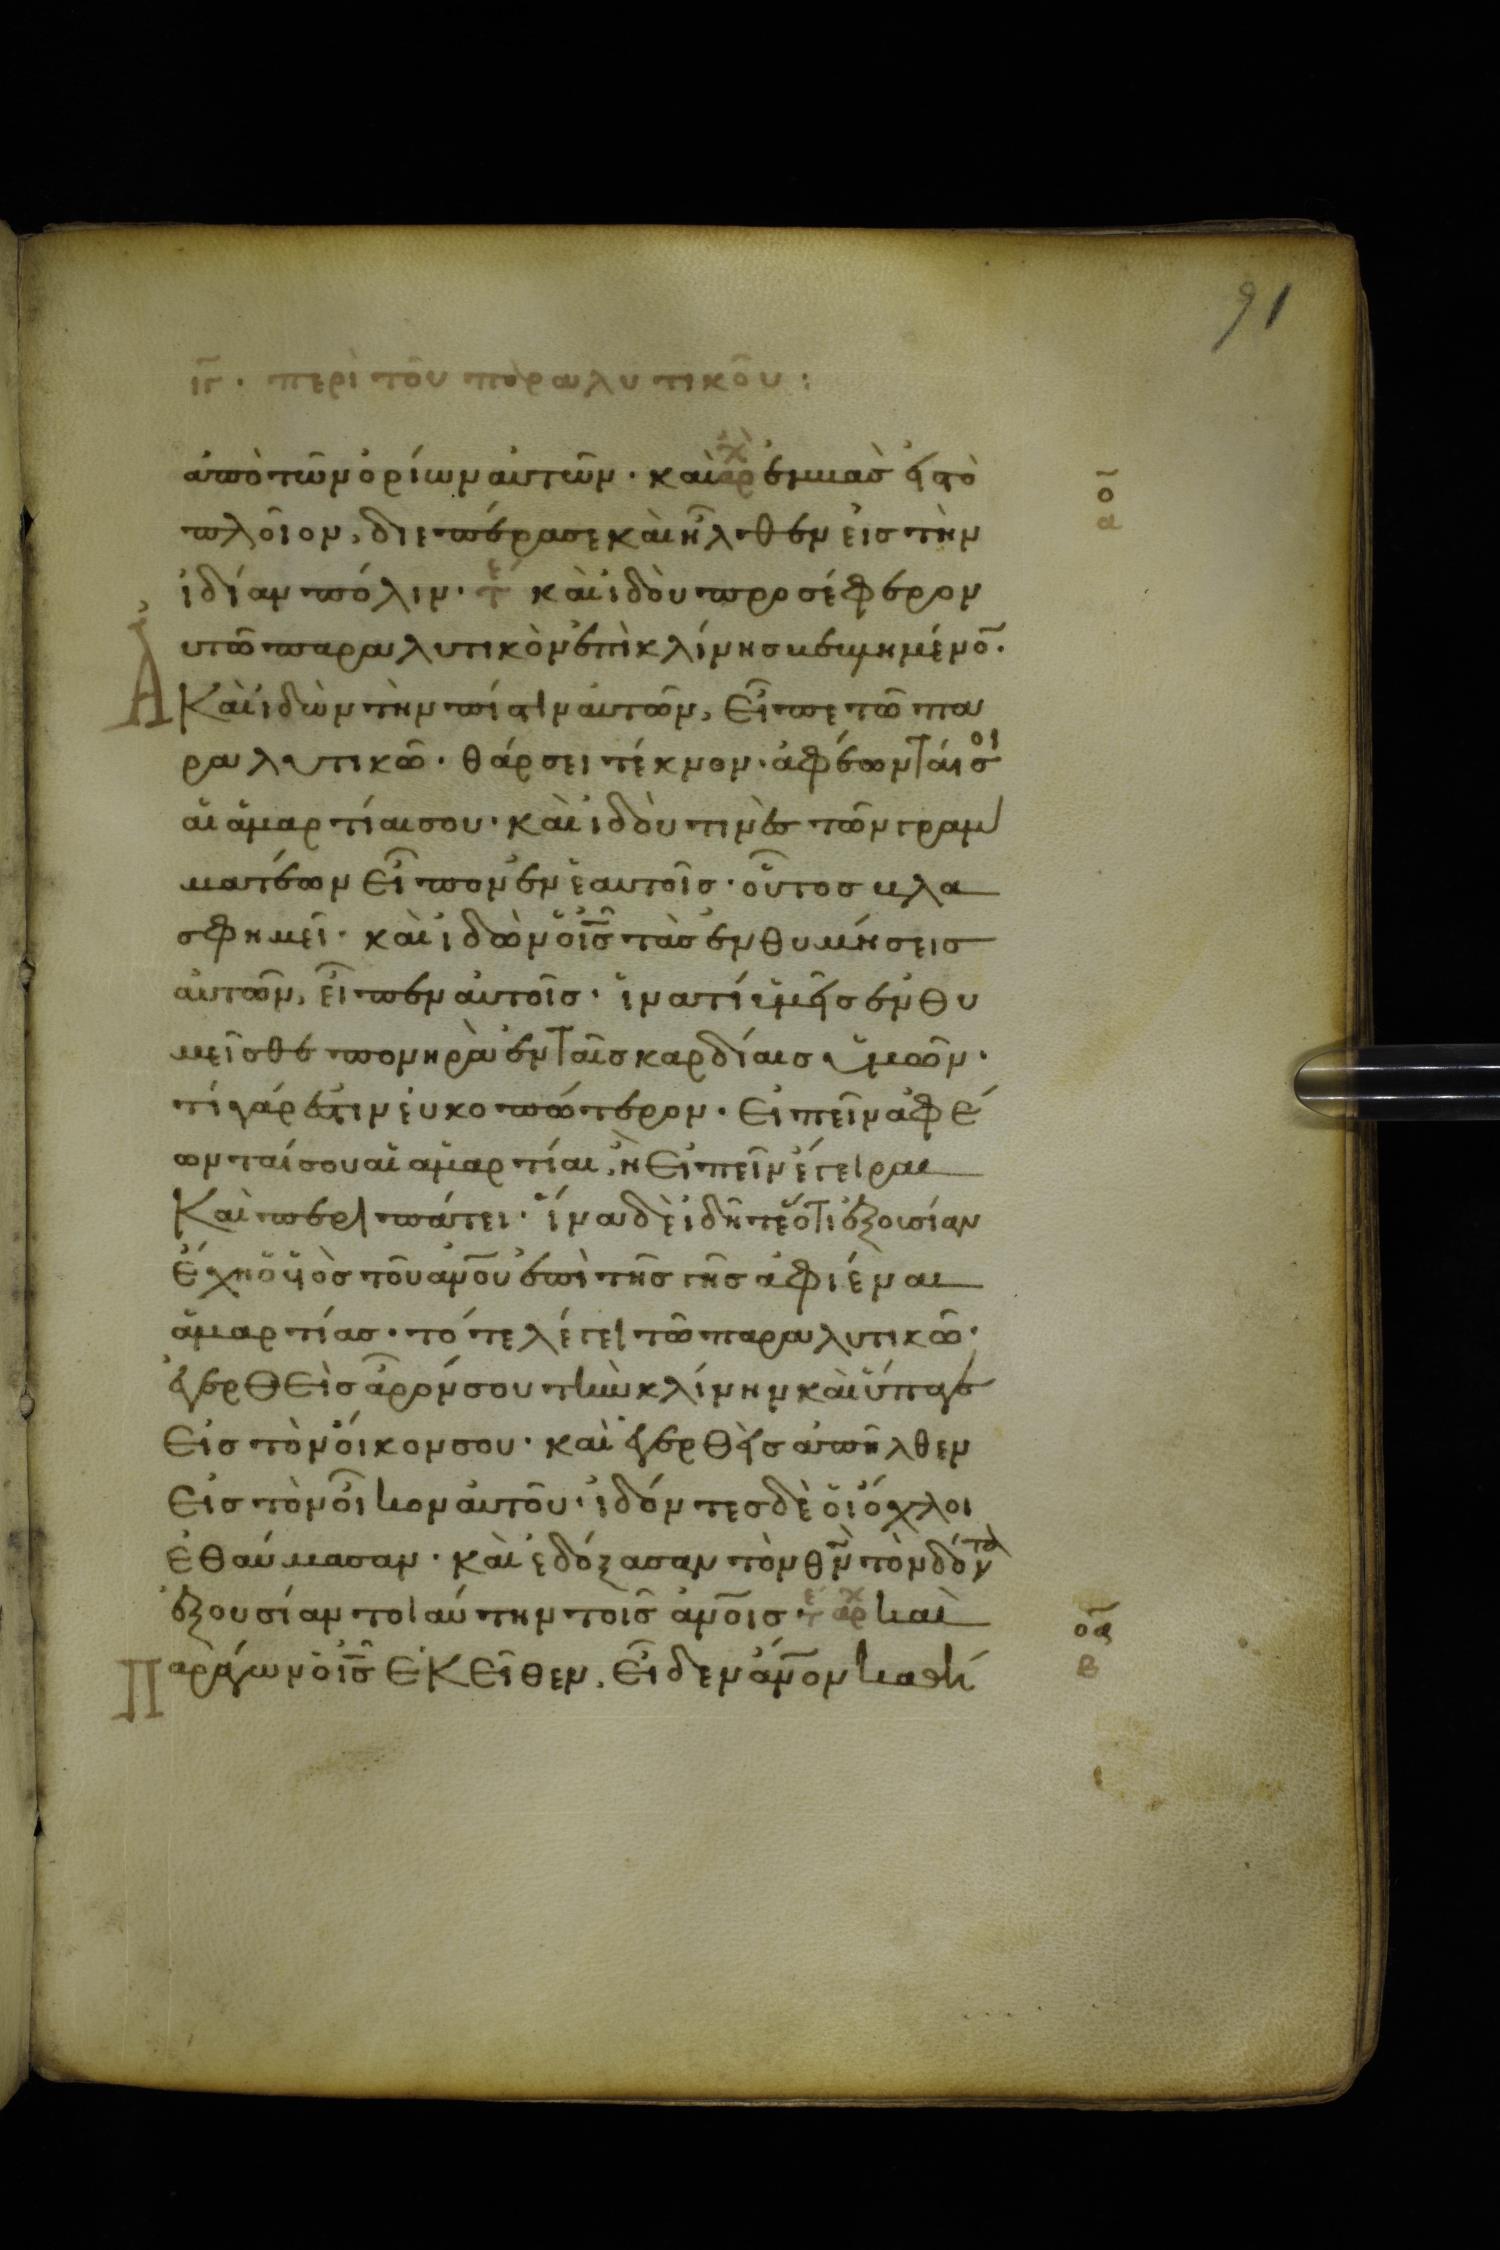 91
ιγ̅ · περὶ τοῦ παραλυτικοῦ :
ἀπὸ τῶν ὁρίων αὐτῶν · καὶ ἀρχ ἐμβὰς εἰς τὸ
ο̅
α
πλοῖον, διεπέρασε καὶ ἦλθεν εἰς τὴν
ἰδίαν πόλιν · τε καὶ ἰδοὺ προσέφερον
αυτῶ παραλυτικὸν ἐπὶ κλίνησ βεβλημένο̅ ·
Καὶ ἰδὼν τὴν πίστιν αὐτῶν, εἶπε τῶ πα
ραλυτικῶ · θάρσει τέκνον · ἀφέωνται σοι
αἱ ἁμαρτίαι σου · καὶ ἰδού τινὲς τῶν γραμ
ματέων εἶπον ἐν ἑαυτοῖσ · οὗτοσ βλα
σφημεῖ · καὶ ἰδὼν ὁ ἰ̅ς̅ τὰσ ἐνθυμήσεισ
αὐτῶν, εἶπεν αὐτοῖσ · ἵνατί ὑμεῖσ ἐνθυ
μεῖσθε πονηρὰ ἐν ταῖσ καρδίαισ ὑμῶν ·
τί γάρ ἐστιν εὐκοπώτερον · εἰπεῖν ἀφέ
ωνταί σου αἱ ἁμαρτίαι, ἢ εἰπεῖν ἔγειραι
Καὶ περιπάτει · ἵνα δὲ ἰδῆτε ὅτι ἐξουσίαν
ἔχει ὁ υἱὸσ τοῦ ἀν̅ου ἐπὶ τῆσ γῆσ ἀφιέναι
ἁμαρτίασ · τότε λέγει τῶ παραλυτικῶ ·
ἐγερθεὶσ ἆρόν σου τὴν κλίνην καὶ ὕπαγε
Εἰσ τὸν οἶκον σου · καὶ ἐγερθεὶσ ἀπῆλθεν
Εἰσ τὸν οἶκον αὐτοῦ · ἰδόντεσ δὲ οἱ ὄχλοι
ἐθαύμασαν · καὶ ἐδόξασαν τὸν θ̅ν̅ τὸν δόντα
ἐξουσίαν τοιαύτην τοῖσ ἀν̅οισ · τε αρχ καὶ
οα̅
β
Παράγων ὁ ἰ̅ς̅ ἐκεῖθεν, εἶδεν ἄν̅ον καθή